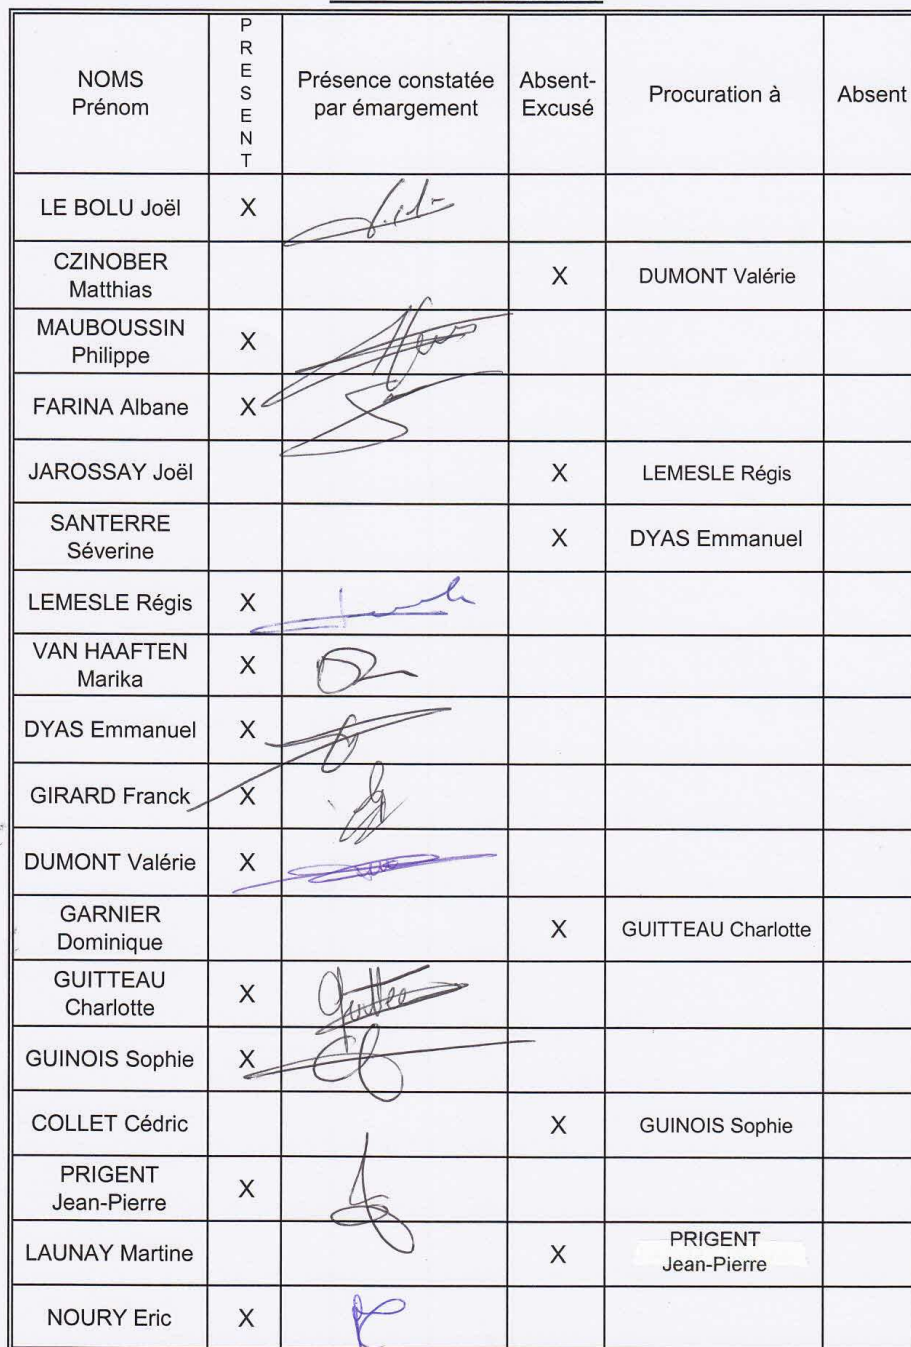 NOMS
Prénom
PRESENT
Présence constatée
par émargement
Absent-
Excusé
Procuration à
Absent
LE BOLU Joël
X
CZINOBER
Matthias
X
DUMONT Valérie
MAUBOUSSIN
Philippe
X
FARINA Albane
X
JAROSSAY Joël
X
LEMESLE Régis
SANTERRE
Séverine
X
DYAS Emmanuel
LEMESLE Régis
X
VAN HAAFTEN
Marika
X
DYAS Emmanuel
X
GIRARD Franck
X
DUMONT Valérie
X
GARNIER
Dominique
X
GUITTEAU Charlotte
GUITTEAU
Charlotte
X
GUINOIS Sophie
X
COLLET Cédric
X
GUINOIS Sophie
PRIGENT
Jean-Pierre
X
LAUNAY Martine
X
PRIGENT
Jean-Pierre
NOURY Eric
X